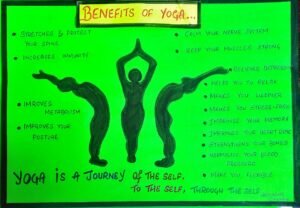 BENEFITS OF YOGA...
• STRETCHES & PROTECT
YOUR SPINE
• INCREASES IMMUNITY
• IMPROVES
METABOLISM
• IMPROVES YOUR
POSTURE
• CALM YOUR NERVE SYSTEM
• KEEP YOUR MUSCLES STRONG
HELPS YOU TO RELAX
• MAKES YOU
• MAKES YOU STRESS FREE
• INCREASE YOUR MEMORY
• IMPROVES YOUR HEART RATE
• STRENGTHENS YOUR BONES
YOUR BLOOD
PRESSURE
• MAKE YOU FLEXIBLE
YOGA IS A JOURNEY OF THE SELF,
TO THE SELF, THROUGH THE SELF